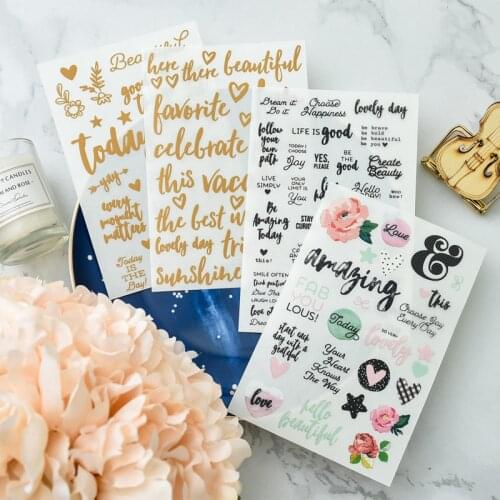 Beautiful
today
yay
every
moment
matters
Today
is The
Day!
here there beautiful
favorite
celebrate
this
the best
lovely day
sunshine
Dream it
Do it.
Choose
Happiness
lovely day
follow
your
own
path
LIFE IS good
be brave
be bold
be beautiful
be you
TODAY I
CHOOSE
Joy
YES,
PLEASE
BE
THE
good
Create
Beauty
LIVE
SIMPLY
YOUR
ONLY
LIMIT IS
You
Hello
Be
Amazing
Today
STAY
this
SMILE OFTEN
think positive
LAUGH
love
amazing
Love
&
this
FAB
YOU
LOUS!
Today
Choose Joy
Every Day
so very
lovely
Start each
day with a
grateful
Your
Heart
Knows
The Way
love
hello
beautiful
CANDLES